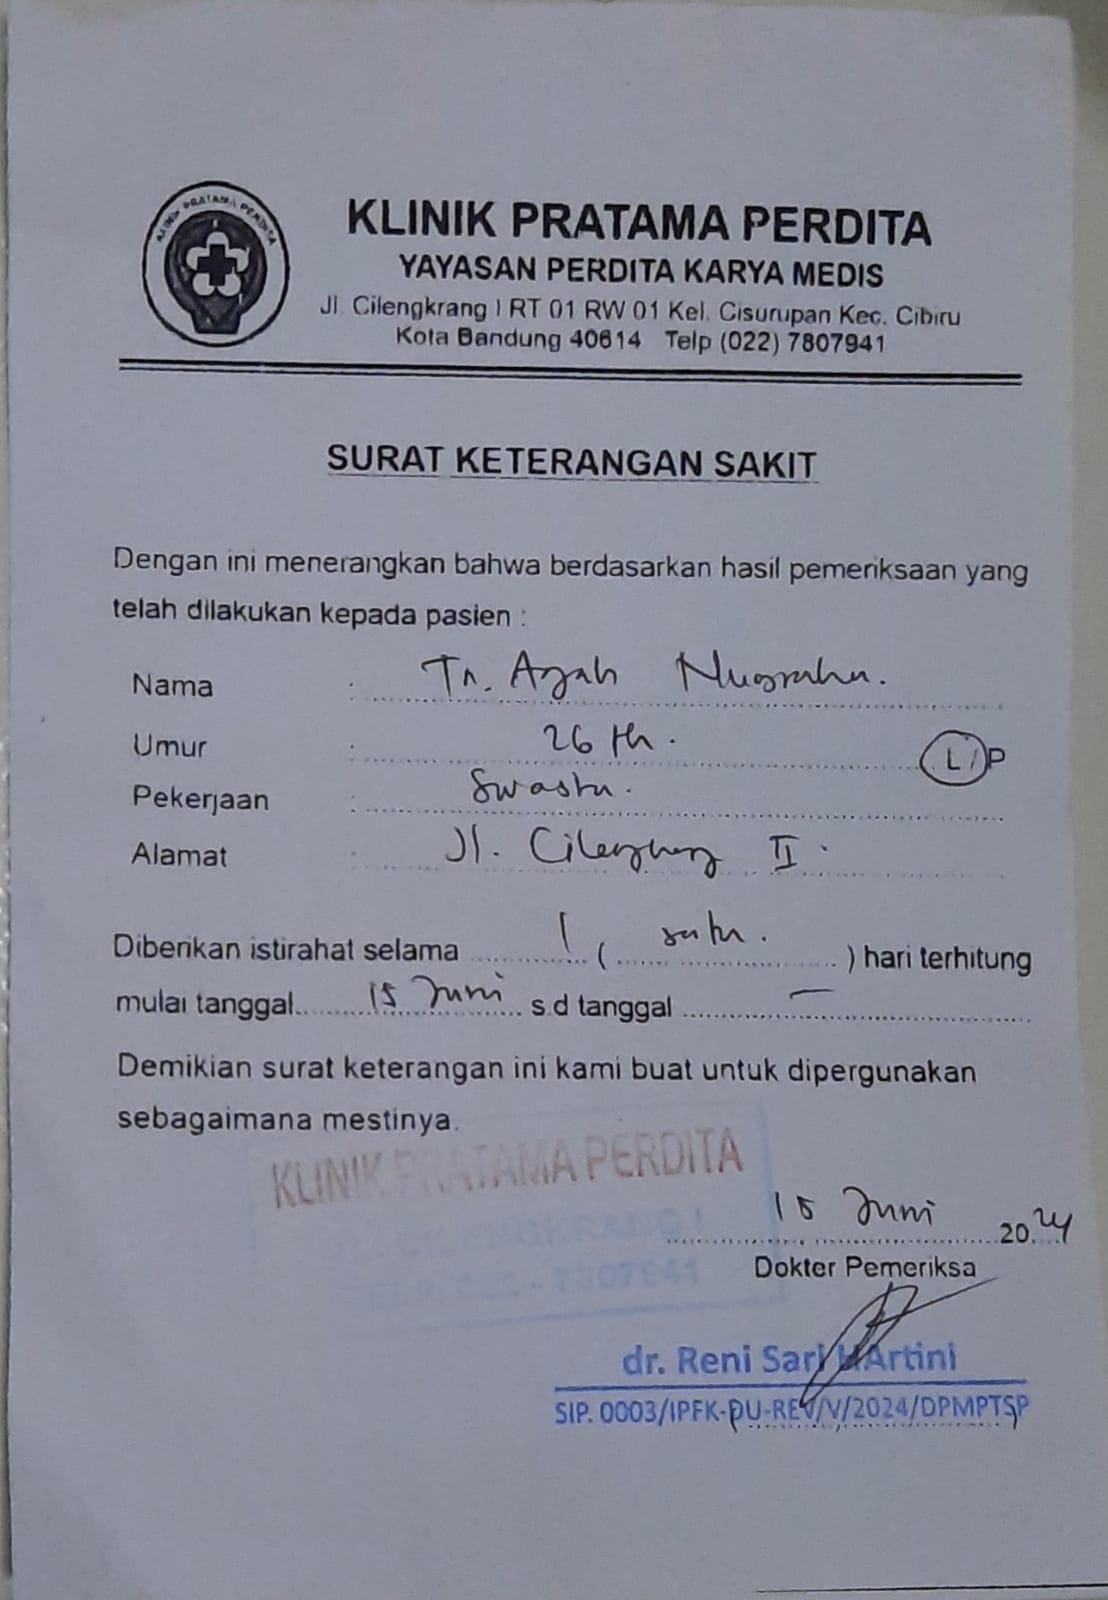 KLINIK PRATAMA PERDITA
KLINIK PRATAMA PERDITA
YAYASAN PERDITA KARYA MEDIS
Jl. Cilengkrang I RT 01 RW 01 Kel. Cisurupan Kec. Cibiru
Kota Bandung 40614 Telp (022) 7807941
SURAT KETERANGAN SAKIT
Dengan ini menerangkan bahwa berdasarkan hasil pemeriksaan yang
telah dilakukan kepada pasien :
Nama : Tn. Azah Nugraha.
Umur : 26 th. L/P
Pekerjaan : Swasta.
Alamat : Jl. II.
Diberikan istirahat selama 1 ( satu. ) hari terhitung
mulai tanggal 15 Juni s.d tanggal –
Demikian surat keterangan ini kami buat untuk dipergunakan
sebagaimana mestinya.
KLINIK PRATAMA PERDITA
JL. CILENGKRANG I
TELP. 022 - 7807941
15 Juni 2024
Dokter Pemeriksa
dr. Reni Sari MArtini
SIP. 0003/IPFK-DU-REV/V/2024/DPMPTSP